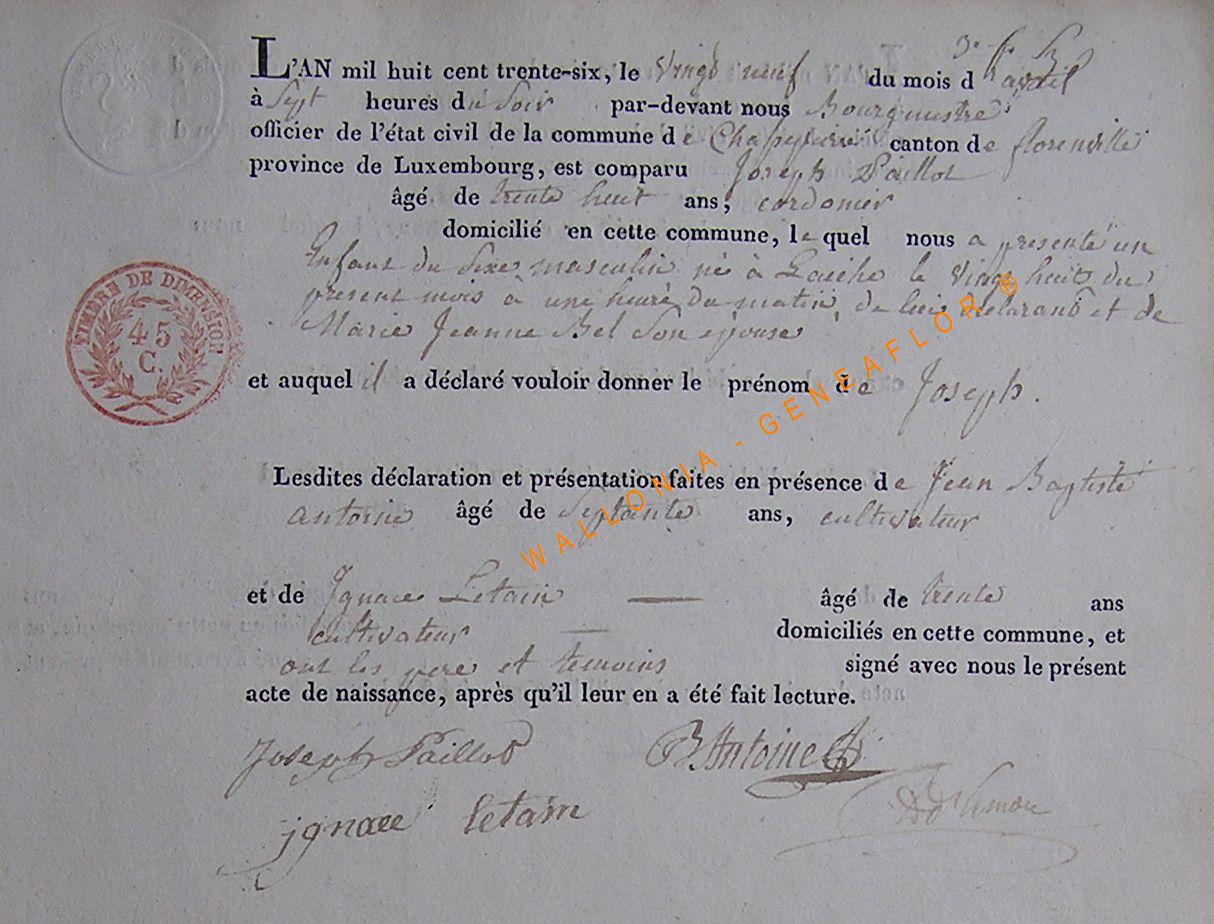 L'AN mil huit cent trente-six, le Vingt neuf du mois d'avril
à Sept heures du Soir par-devant nous Bourgmestre
officier de l'état civil de la commune de canton de florenville
province de Luxembourg, est comparu Joseph Paillot
âgé de trente huit ans, cordonier
domicilié en cette commune, le quel nous a presenté un
Enfant du Sixe masculin né à le Vingt huit du
present mois à une heure du matin, de lui declarant et de
Marie Jeanne Bel Son epouse
et auquel il a déclaré vouloir donner le prénom de Joseph.
Lesdites déclaration et présentation faites en présence de Jean Baptiste
antoine âgé de Septante ans, cultivateur
et de Ignace Letain âgé de trente ans
cultivateur domiciliés en cette commune, et
ont les pere et temoins signé avec nous le présent
acte de naissance, après qu'il leur en a été fait lecture.
Joseph Paillot
Antoine
jgnace letain
TIMBRE DE DIMENSION
45
C.
WALLONIA - GENEAFLOR ®